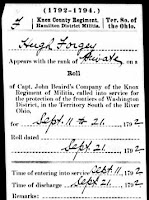 (1792-1794.)
Knox County Regiment,
Hamilton District Militia.
Ter. So. of the
Ohio.
Hugh Forgey
Appears with the rank of Private on a
Roll
of Capt. John Beaird's Company of the Knox
Regiment of Militia, called into service for
the protection of the frontiers of Washington
District, in the Territory South of the River
Ohio,
for Sept. 11 to 21, 1792
Roll dated
Sept 21, 1792
Time of entering into service Sept 11, 1792
Time of discharge Sept 21, 1792
Remarks: